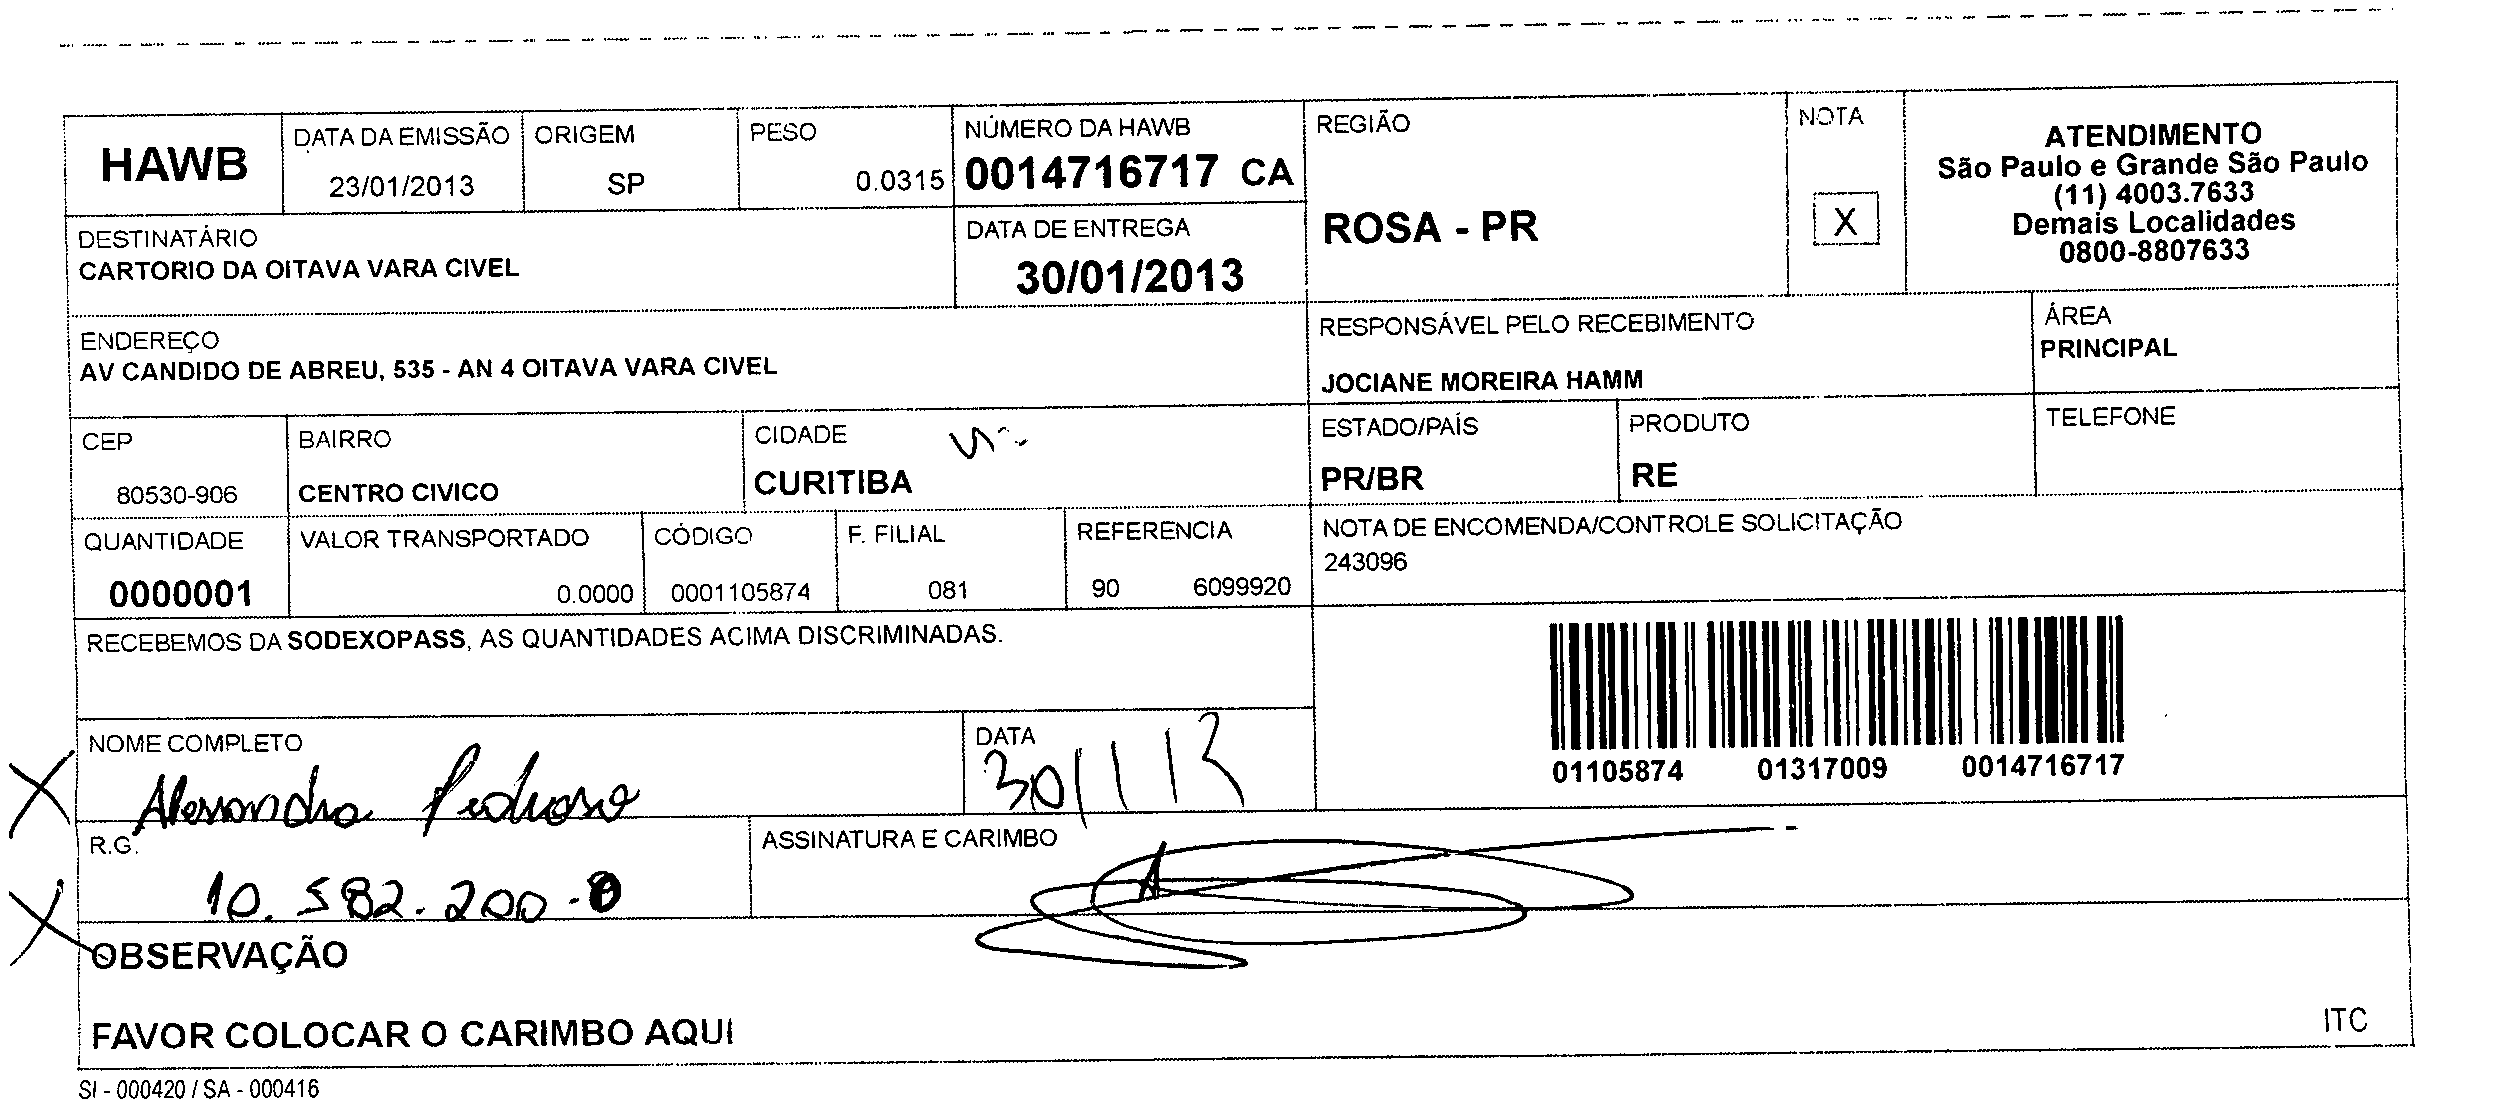 HAWB
DATA DA EMISSÃO
23/01/2013
ORIGEM
SP
PESO
0.0315
NÚMERO DA HAWB
0014716717 CA
REGIÃO
ROSA - PR
NOTA
X
ATENDIMENTO
São Paulo e Grande São Paulo
(11) 4003.7633
Demais Localidades
0800-8807633
DESTINATÁRIO
CARTORIO DA OITAVA VARA CIVEL
DATA DE ENTREGA
30/01/2013
ENDEREÇO
AV CANDIDO DE ABREU, 535 - AN 4 OITAVA VARA CIVEL
RESPONSÁVEL PELO RECEBIMENTO
JOCIANE MOREIRA HAMM
ÁREA
PRINCIPAL
CEP
80530-906
BAIRRO
CENTRO CIVICO
CIDADE
CURITIBA
ESTADO/PAÍS
PR/BR
PRODUTO
RE
TELEFONE
QUANTIDADE
0000001
VALOR TRANSPORTADO
0.0000
CÓDIGO
0001105874
F. FILIAL
081
REFERENCIA
90 6099920
NOTA DE ENCOMENDA/CONTROLE SOLICITAÇÃO
243096
RECEBEMOS DA SODEXOPASS, AS QUANTIDADES ACIMA DISCRIMINADAS.
01105874 01317009 0014716717
NOME COMPLETO
Alessandra Pedroso
DATA
30/1/13
R.G.
10.582.200-0
ASSINATURA E CARIMBO
OBSERVAÇÃO
FAVOR COLOCAR O CARIMBO AQUI
ITC
SI - 000420 / SA - 000416